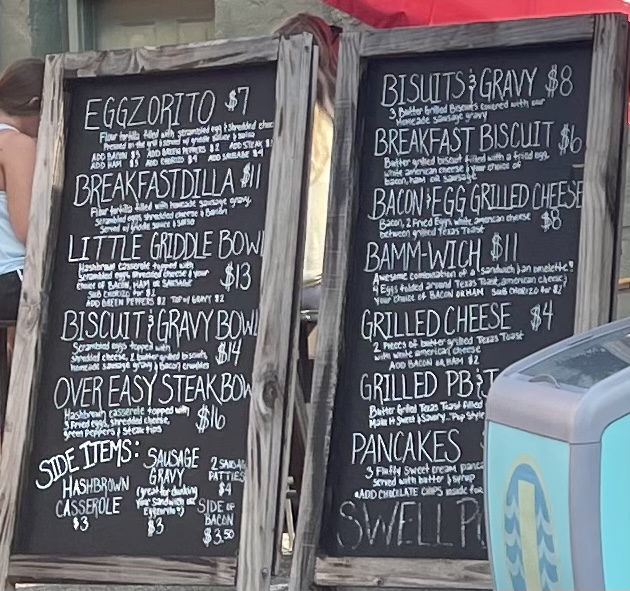 EGGZORITO $7
Flour tortilla filled with scrambled egg & shredded
Pressed on the grill served w/ griddle sauce & salsa
ADD BACON $3 ADD GREEN PEPPERS $2 ADD STEAK
ADD HAM $3 ADD CHORIZO $4 ADD SAUSAGE $4
BREAKFASTDILLA $11
Flour tortilla filled with homemade sausage gravy,
scrambled eggs, shredded cheese & bacon
served w/ griddle sauce & salsa
LITTLE GRIDDLE BOWL
Hashbrown casserole topped with
scrambled eggs, shredded cheese & your
choice of BACON, HAM or SAUSAGE $13
SUB CHORIZO for $2
ADD GREEN PEPPERS $2 TOP w/ GRAVY $2
BISCUIT & GRAVY BOWL
Scrambled eggs topped with
shredded cheese, 2 butter grilled biscuits, $14
homemade sausage gravy & bacon crumbles
OVER EASY STEAK BOW
Hashbrown casserole topped with
3 fried eggs, shredded cheese, $16
green peppers & steak tips
SIDE ITEMS:
HASHBROWN
CASSEROLE
$3
SAUSAGE
GRAVY
(great for dunking
your sandwich or
Eggzorito!)
$3
2
PATTIES
$4
SIDE OF
BACON
$3.50
BISUITS & GRAVY $8
3 Butter Grilled Biscuits covered with our
homemade sausage gravy
BREAKFAST BISCUIT $6
Butter grilled biscuit filled with a fried egg,
white american cheese & your choice of
bacon, ham or sausage
BACON & EGG GRILLED CHEESE
Bacon, 2 Fried Eggs, white american cheese $8
between grilled Texas Toast
BAMM-WICH $11
Awesome combination of a sandwich & an omelette!!
Eggs folded around Texas Toast, american cheese &
your choice of BACON or HAM SUB CHORIZO for $2
GRILLED CHEESE $4
2 Pieces of butter grilled Texas Toast
with white american cheese
ADD BACON or HAM $2
GRILLED PB & J
Butter Grilled Texas Toast filled
Make it Sweet & Savory.. "Pup Style
PANCAKES
3 Fluffy sweet cream panca
served with butter & syrup
*ADD CHOCLATE CHIPS inside for
SWELL P